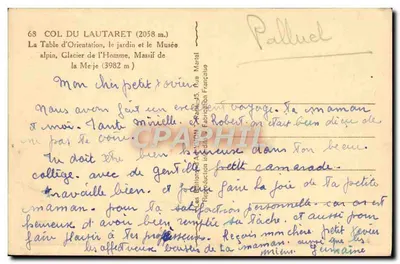 68 COL DU LAUTARET (2058 m.)
La Table d'Orientation, le jardin et le Musée
alpin, Glacier de l'Homme, Massif de
la Meje (3982 m)
Palluel
CPARHAMA
Mon cher petit
Nous avons fait un excellent voyage. Ta maman
et moi. Tante Mireille et Robert on était bien déçu de
ne pas te voir
Tu doit être bien heureuse dans ton beau
collège. avec de gentille petit camarade.
Travaille bien. et pour faire la joie de ta petite
maman. pour ta satisfaction personnelle. car on est
heureux d'avoir bien remplie sa tâche. et aussi pour
faire plaisir à tes professeurs. Reçois mon chéri petit
les affectueux baisers de ta maman. ainsi que les
miens Germaine